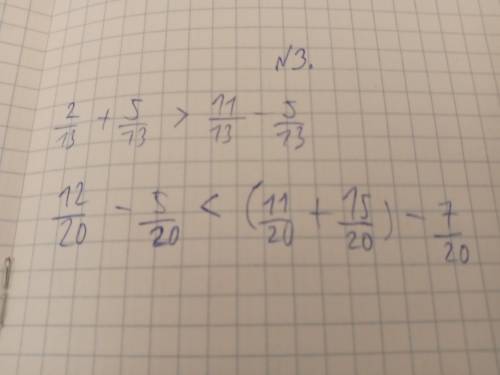 №3.
2/13 + 5/13 > 11/13 - 5/13
12/20 - 5/20 < (11/20 + 15/20) - 7/20